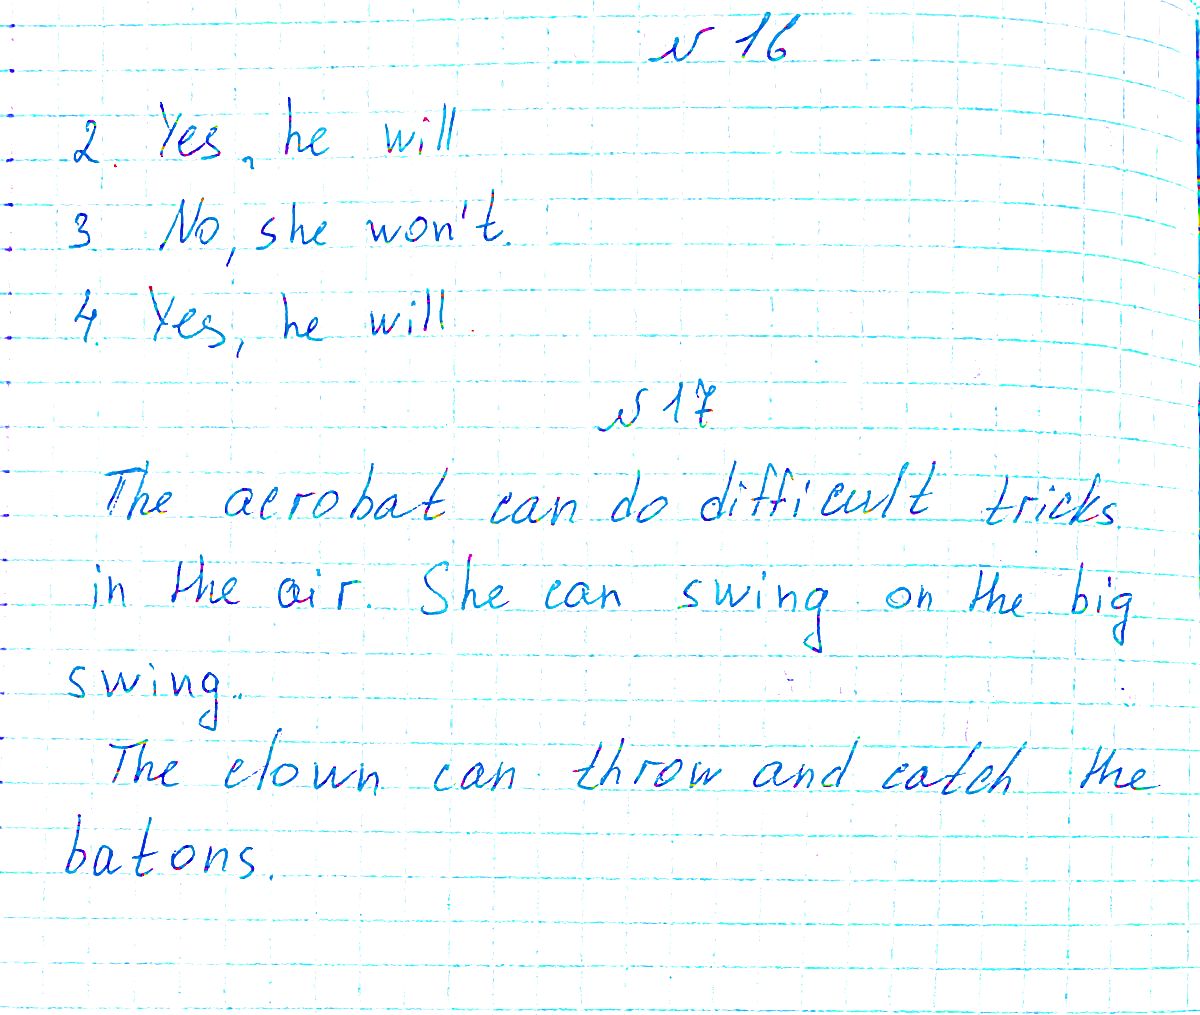 № 16
2. Yes, he will
3 No, she won't.
4. Yes, he will.
№ 17
The acrobat can do difficult tricks
in the air. She can swing on the big
swing.
The clown can throw and catch the
batons.